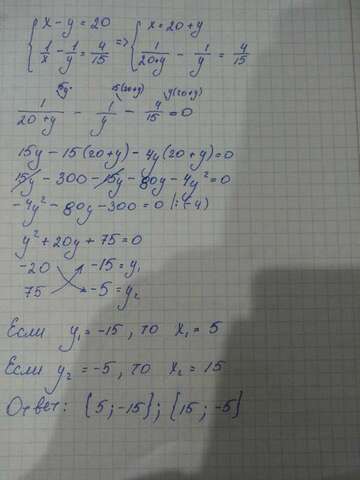 { x - y = 20 { x = 20 + y
1/x - 1/y = 4/15 => 1/(20+y) - 1/y = 4/15
15y 15(20+y) y(20+y)
1/(20+y) - 1/y - 4/15 = 0
15y - 15(20+y) - 4y(20+y) = 0
15y - 300 - 15y - 80y - 4y² = 0
-4y² - 80y - 300 = 0 |:(-4)
y² + 20y + 75 = 0
-20 -15 = y₁
75 -5 = y₂
Если y₁ = -15, то x₁ = 5
Если y₂ = -5, то x₂ = 15
Ответ: {5; -15}; {15; -5}